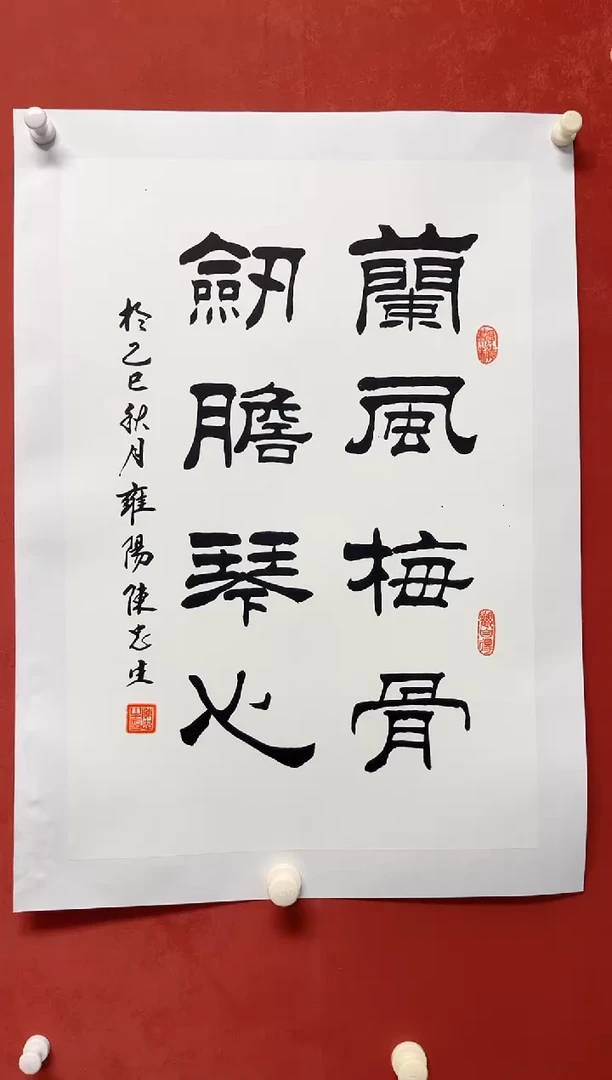 蘭風梅骨
劒膽琴心
於乙巳秋月雍陽陳志生